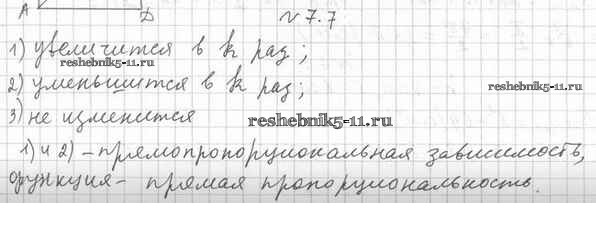 A D № 7.7
1) увеличится в k раз;
reshebnik5-11.ru
2) уменьшится в k раз;
reshebnik5-11.ru
3) не изменится
reshebnik5-11.ru
1) и 2) - прямопропорциональная зависимость,
функция - прямая пропорциональность.